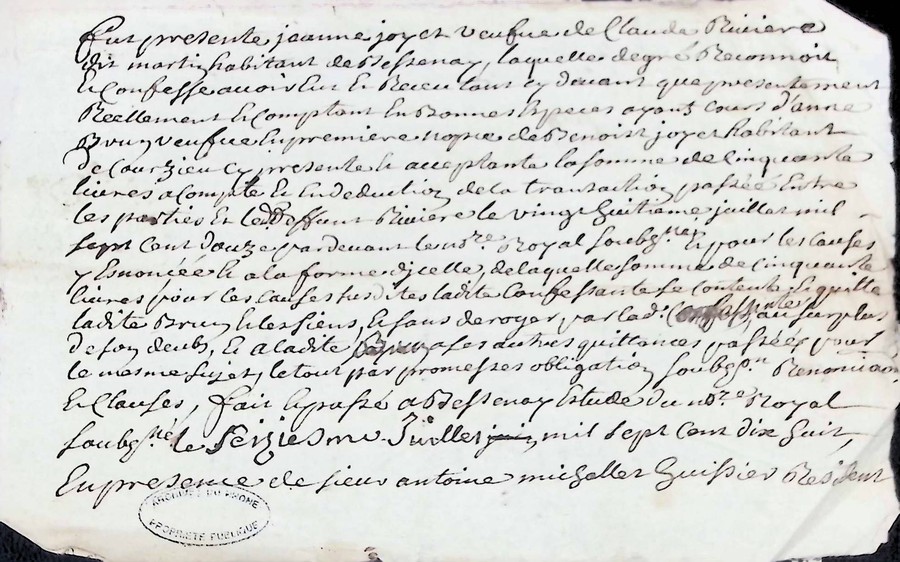 fut presente jeanne joyet veufue de Claude Riviere
dit martin habitant de Bessenay, laquelle de gré Reconnoit
Et Confesse avoir Eu Et Receu tant cy devant que presentement
Reellement Et Comptant En Bonnes Especes ayant Cours d'anne
Brun veufue En premiere nopce de Benoist joyet habitant
de Courzieu Cy presente Et acceptante la somme de Cinquante
livres a Compte Et En deduction de la transaction passée Entre
les parties Et led deffunt Riviere le vingt huitieme juillet mil
sept Cent douze pardevant le no.re Royal soubz.né Et pour les Causes
y Esnoncée Et a la forme dicelle, de laquelle somme de Cinquante
livres pour les Causes susdites ladite Confessante se Contente Et quitte
ladite Brun Et les siens, Et sans deroger par lad. au surplus
de son deub, Et a ladite a ses autres quittances passées pour
le mesme sujet, le tout par promesses obligation soubz.on Renonciaon
Et Clauses, fait Et passé a Bessenay Estude du no.re Royal
soubz.né le Seiziesme Juillet juin, mil sept Cent dix huit,
En presence de sieur antoine michellet huissier Resident
ARCHIVES DU RHONE
PROPRIETE PUBLIQUE